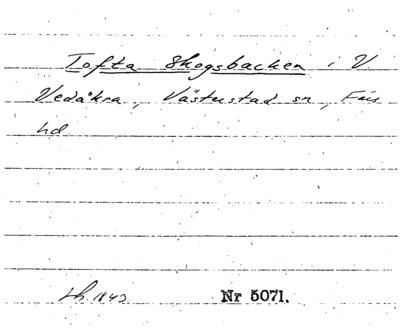 Tofta Skogsbacken i V.
Vedåkra, Västustad sn, Färs
hd
Lh. 1842 Nr 5071.